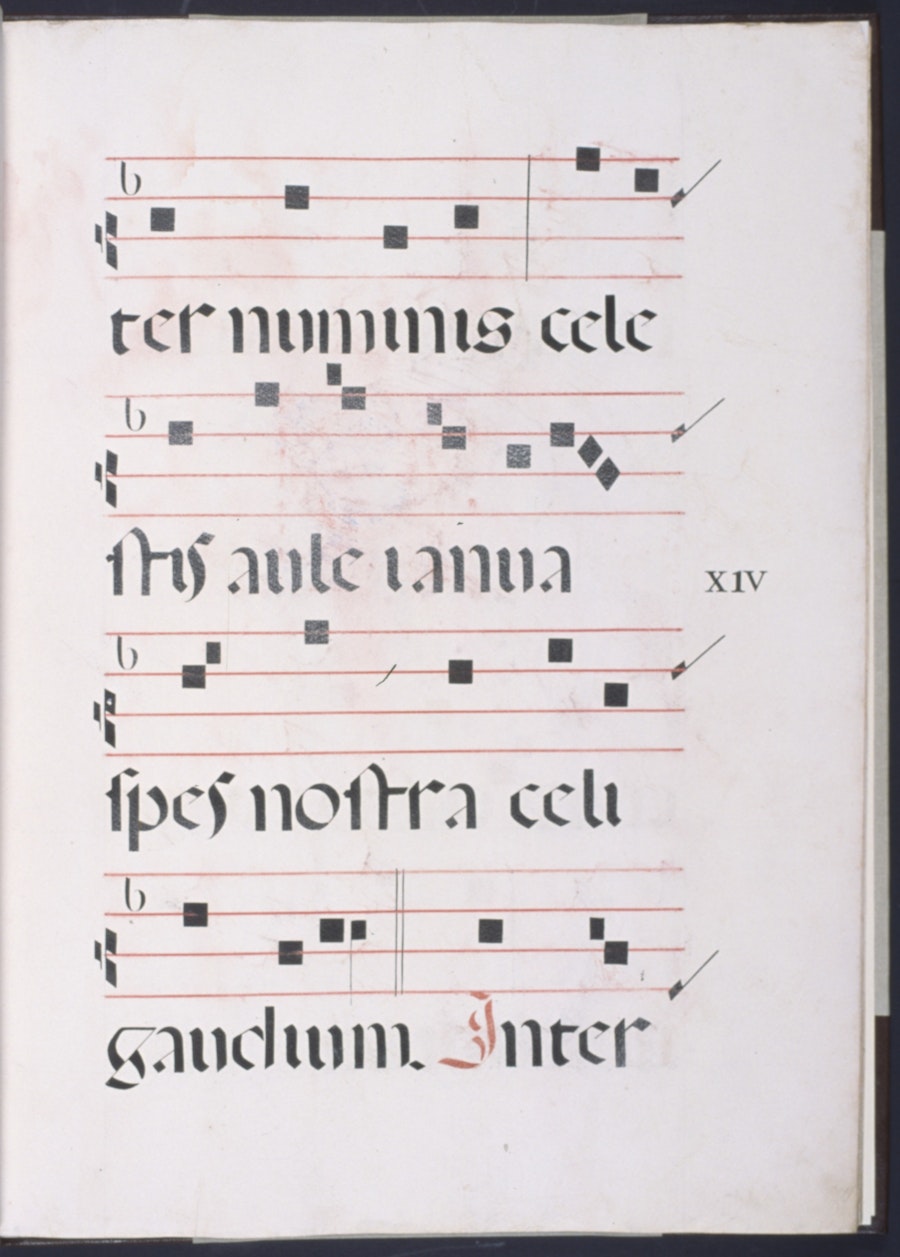 ter numinis cele
ſtis aule ianua
XIV
ſpes noſtra celi
gaudium. Inter